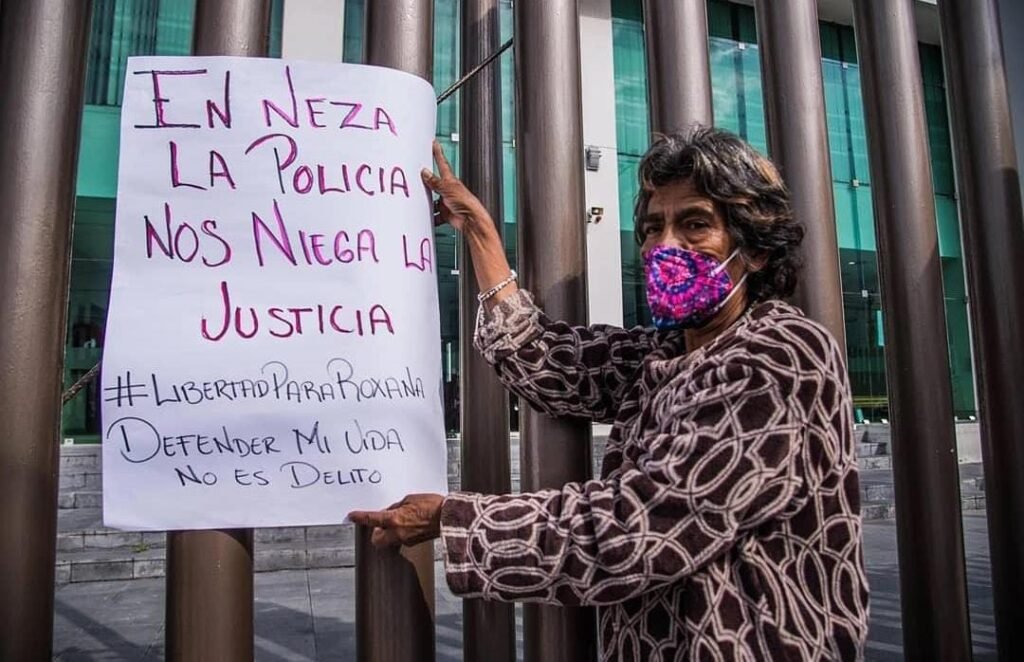 EN NEZA
LA POLICIA
NOS NIEGA LA
JUSTICIA
#LIBERTADPARAROXANA
DEFENDER MI VIDA
NO ES DELITO